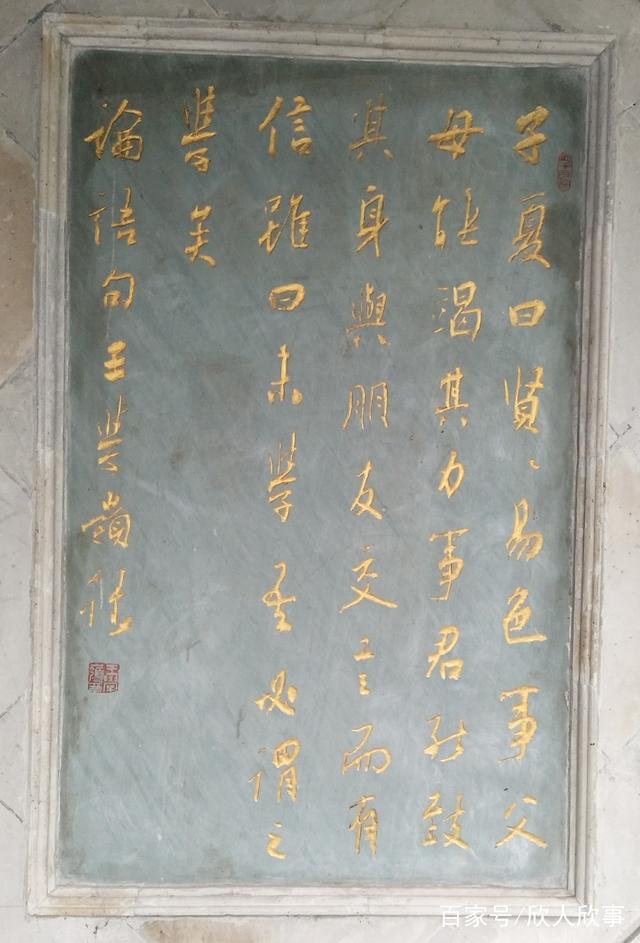 子夏曰贤〻易色事父
母能竭其力事君能致
其身與朋友交言而有
信雖曰未學吾必謂之
學矣
論語句王學嶺
百家号/欣人欣事